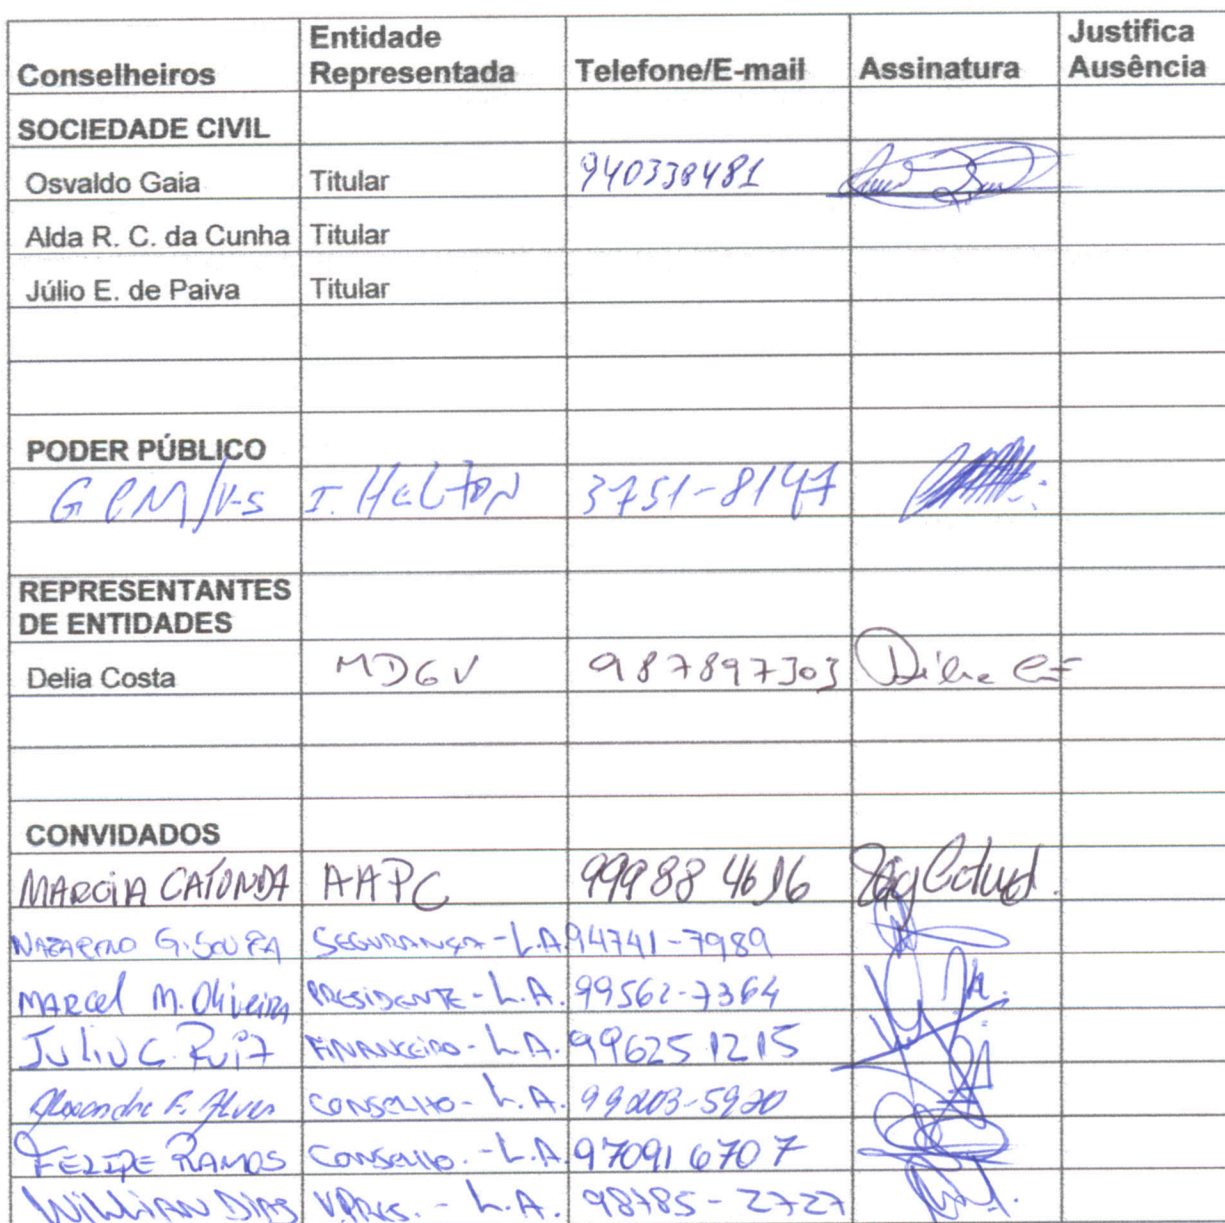 Conselheiros Entidade Representada Telefone/E-mail Assinatura Justifica Ausência
SOCIEDADE CIVIL
Osvaldo Gaia Titular 940338481
Alda R. C. da Cunha Titular
Júlio E. de Paiva Titular
PODER PÚBLICO
GCM/V-S I. HELTON 3751-8147
REPRESENTANTES DE ENTIDADES
Delia Costa MDGV 987897303
CONVIDADOS
MARCIA CATUNDA AAPC 99988 4616
NAZARENO G. SOUZA SEGURANÇA - L.A. 94741-7989
MARCEL M. Oliveira PRESIDENTE - L.A. 99562-7364
JULIO C. RUIZ FINANCEIRO - L.A. 996251215
Alexandre F. Alves CONSELHO - L.A.
FELIPE RAMOS CONSELHO. - L.A. 970916707
WILLIAN DIAS V.PRES. - L.A. 98785-2727